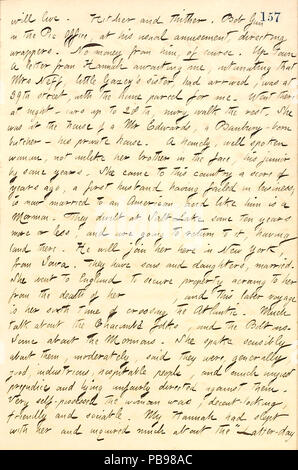 157
will live. Hitcher and thither. Bob Gun
in the Pic Office, at his usual amusement, directing
wrappers. No money from him, of course. Up town
a letter from Hannah awaiting me, intimating that
Mrs Neff, little Gazey's sister, had arrived, was at
39th street, with the home parcel for me. Went there
at night – cars up to 28th, survy walk the rest. She
was at the house of a Mr Edwards, a Banbury-born
butcher – his private house. A homely, well spoken
woman, not unlike her brother in the face, his junior
by some years. She came to this country a score of
years ago, a first husband having failed in business,
is now married to an American, bred like him is a
Mormon. They dwelt at Salt Lake some ten years
more or less, and are going to return to it, having
land there. He will join her here in New York,
from Iowa. They have sons and daughters, married.
She went to England to secure property accruing to her
from the death of her , and this latter voyage
is her sixth time of crossing the Atlantic. Much
talk about the Chacombe folks, and the Boltons.
Some about the Mormons. She spoke sensibly
about them, moderately, said they were, generally
good, industrious, hospitable people, and much unjust
prejudice and lying unfairly directed against them.
Very self-possessed the woman was; decent-looking,
friendly and sociable. My Hannah had slept
with her and inquired much about the "Latter-day
alamy
Image ID: PB98AC
www.alamy.com